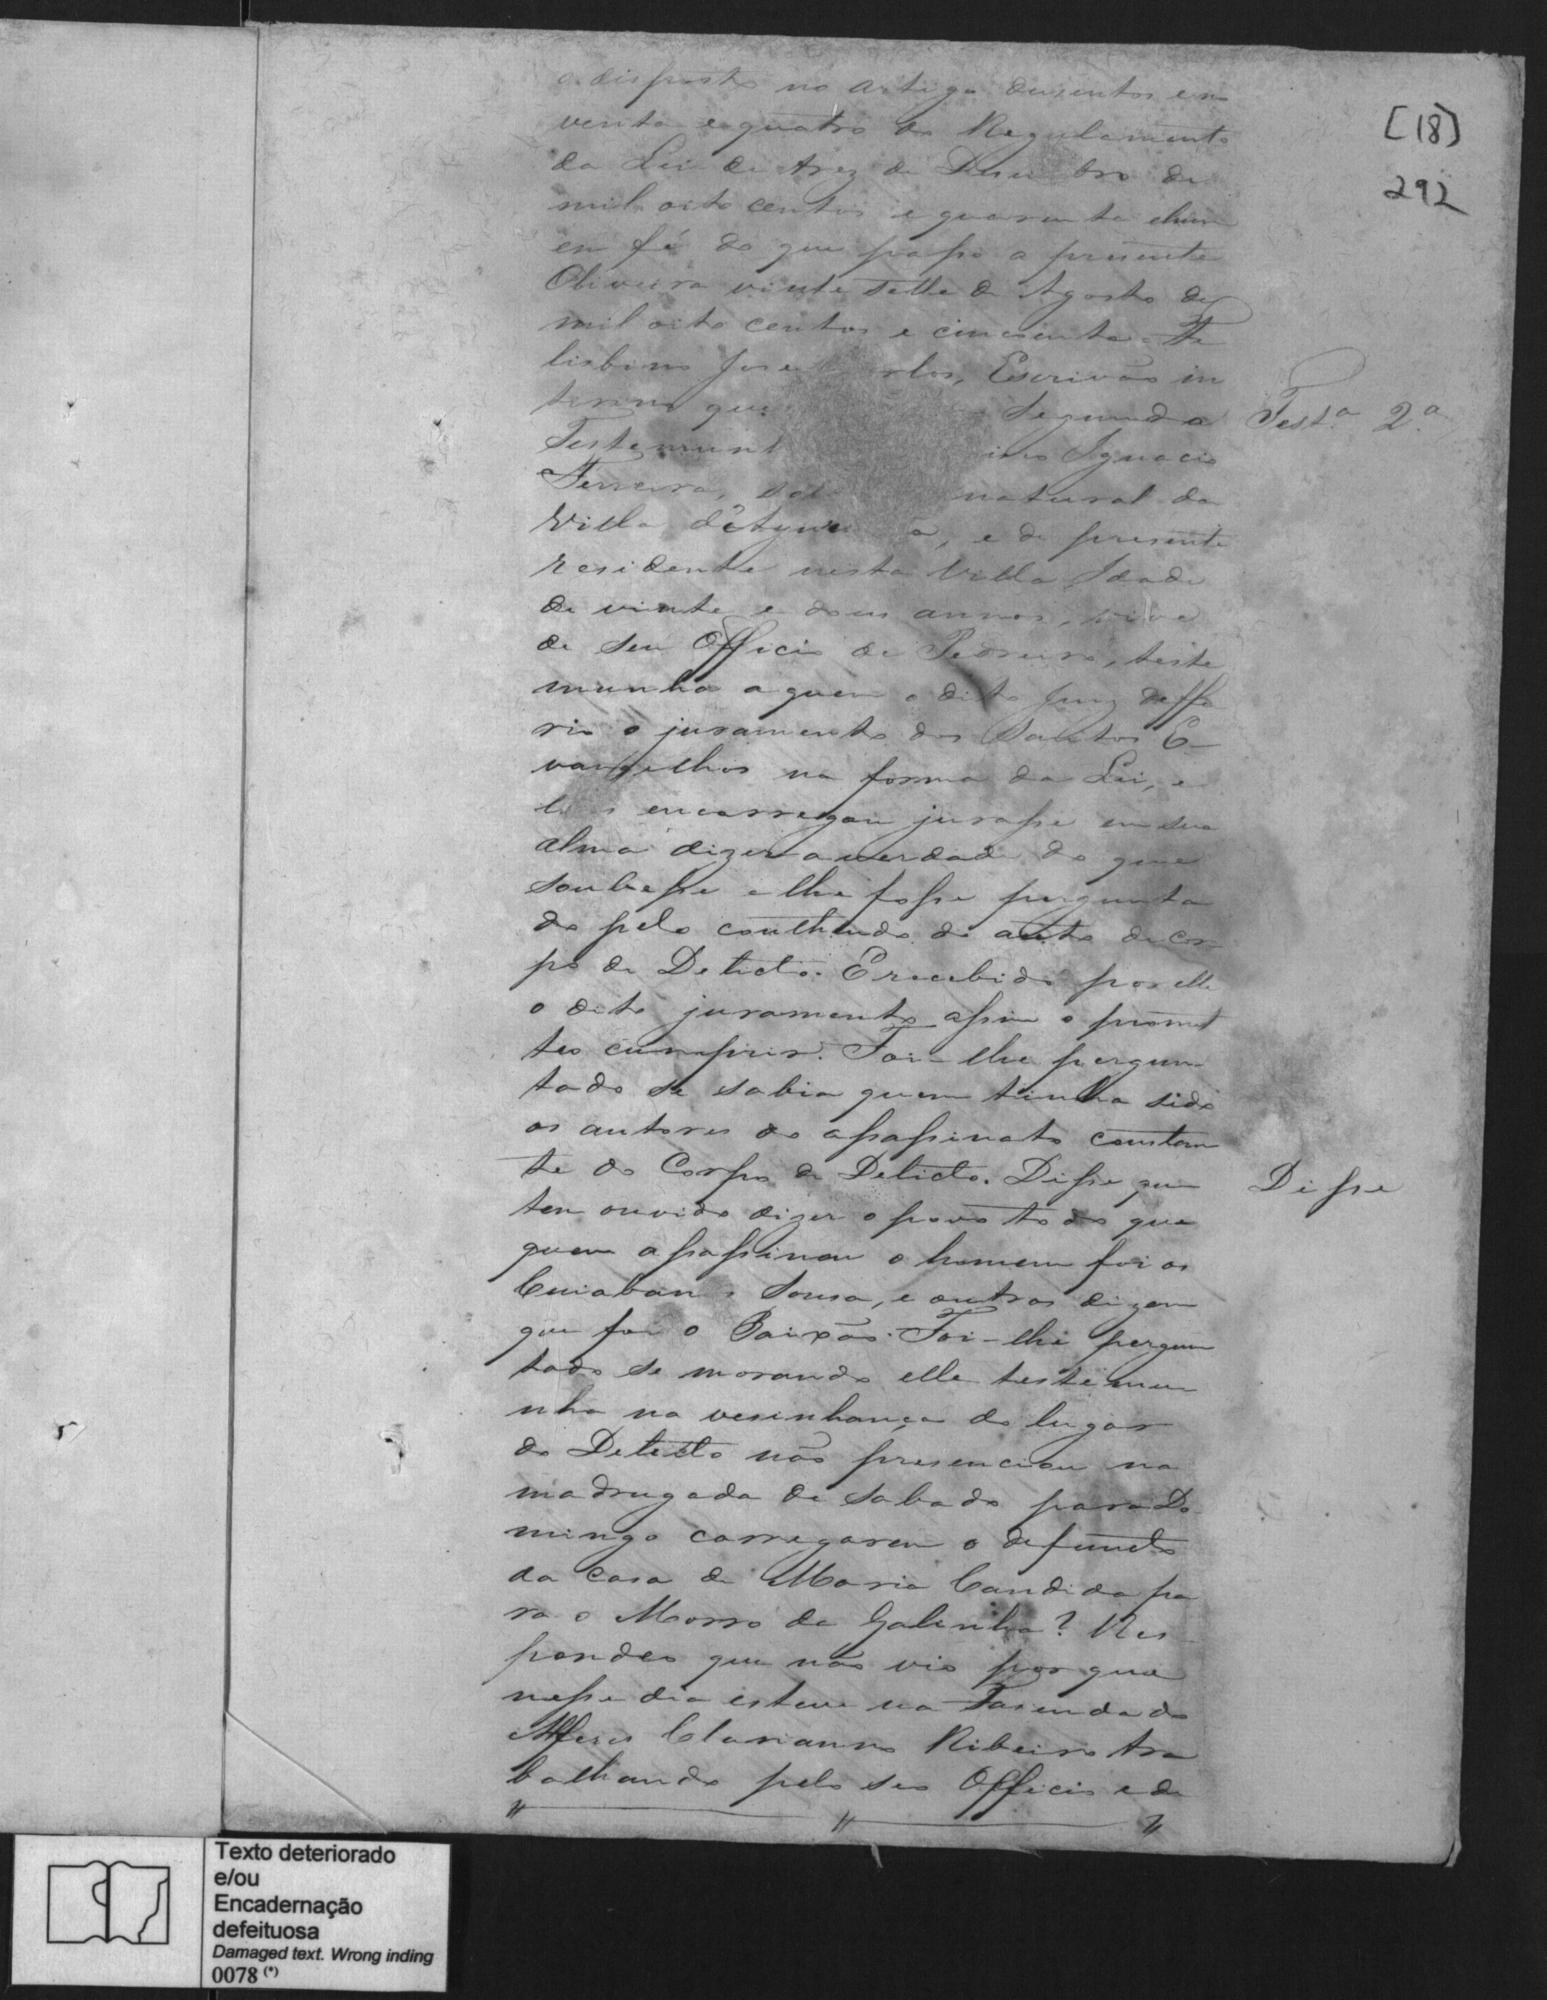 o disposto no artigo dusentos e no
venta e quatro do Regulamento
da Lei de trez de Desembro de
mil oito centos e quarenta e hum
em fé do que passo a presente
Oliveira vinte sette de Agosto de
mil oito centos e cincoenta. Fe
lisbino Jose Escrivão in
terino que Segunda
Test.ª 2.ª
Testemunh Ignacio
Ferreira, natural da
Villa d', e de presente
residente nesta Villa Idade
de vinte e dous annos, vive
de seu Officio de Pedreiro, teste
munha a quem o dito Juiz deffe
rio o juramento dos Santos E-
vangelhos na forma da Lei, e
encarregou jurasse em sua
alma dizer a verdade do que
soubesse e lhe fosse pergunta
do pelo conthiudo do auto de cor-
po de Delicto. E recebido por elle
o dito juramento assim o promet
teo cumprir. Foi-lhe pergun-
tado se sabia quem tinha sido
os autores do assassinato constan
te do Corpo de Delicto. Disse que
Disse
tem ouvido dizer o povo todo que
quem assassinou o homem foi os
Cuiaban Sousa, e outros dizem
que foi o Paixão. Foi-lhe pergun
tado se morando elle testemu
nha na vesinhança do lugar
do Delicto não presenciou na
madrugada de Sabado para Do
mingo carregarem o defuncto
da casa de Maria Candida pa
ra o Morro da Galinha? Res-
pondeo que não vio por que
nesse dia esteve na Fasenda do
Alferes Clarianno Ribeiro tra
balhando pelo seo Officio e de
[18]
292
Texto deteriorado
e/ou
Encadernação
defeituosa
Damaged text. Wrong inding
0078 (*)